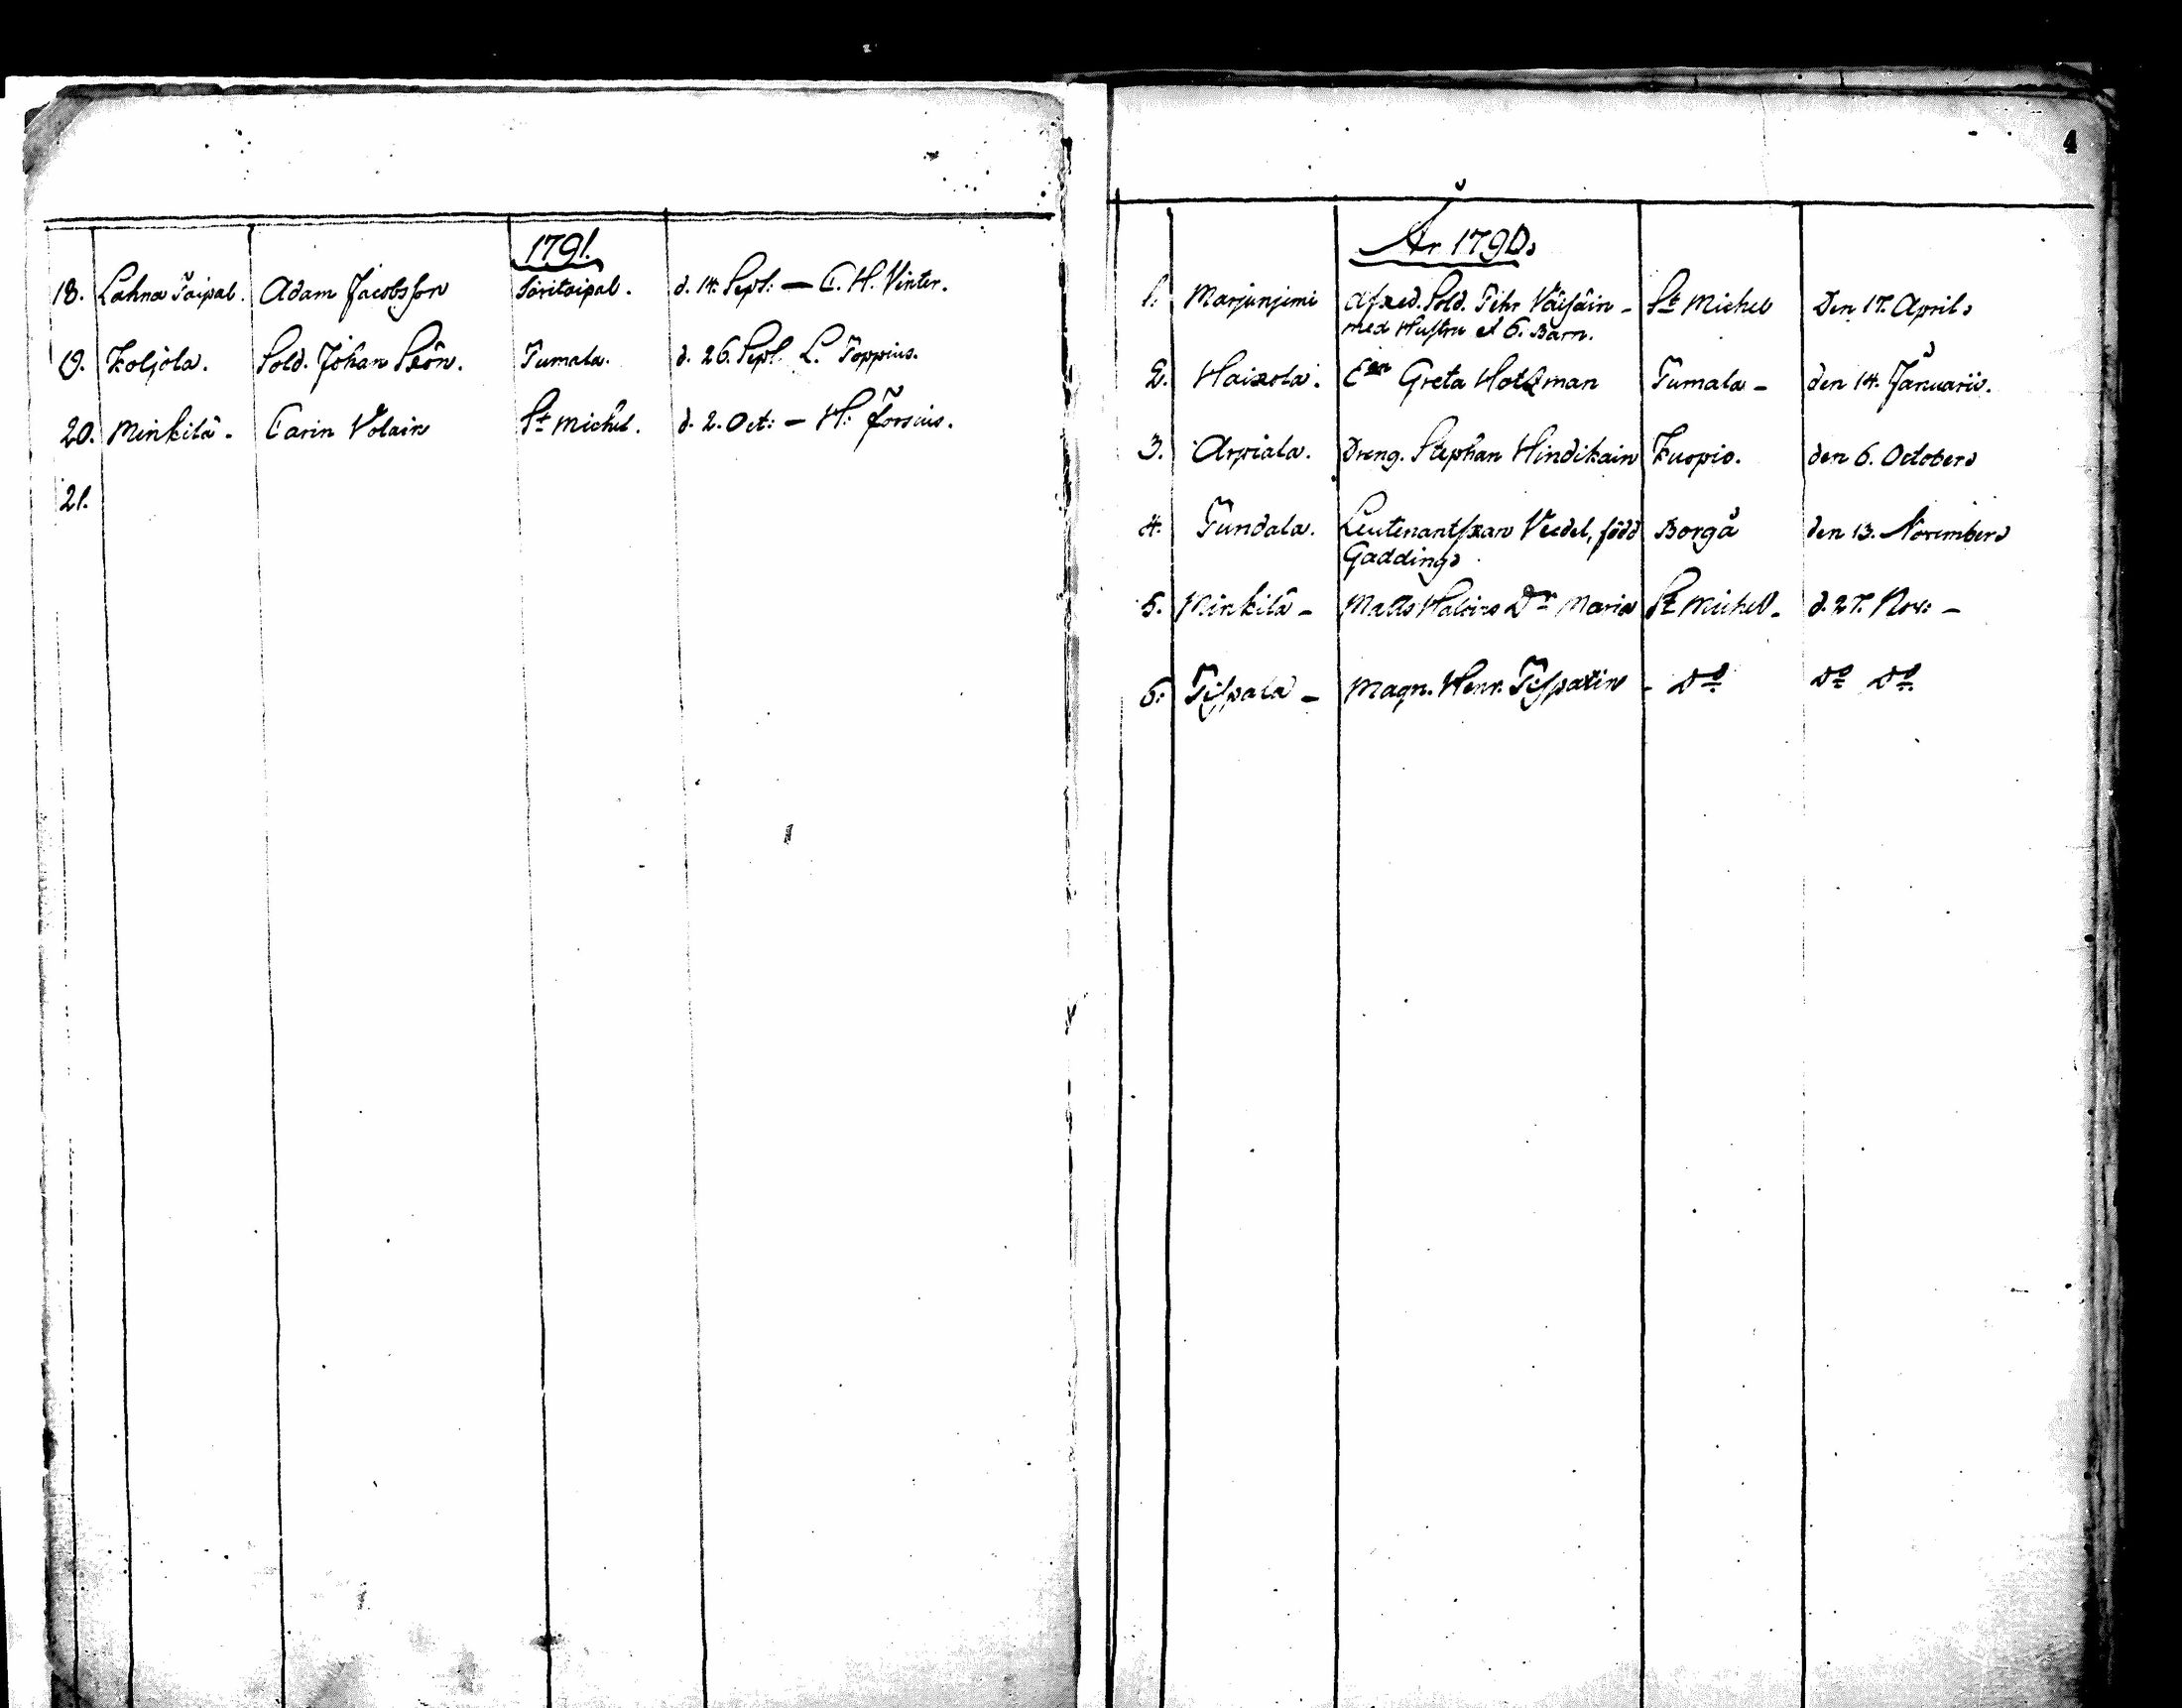 1791.
18. Lahna Taipal. Adam Jacobsson Savitaipal. d. 14. Sept: — C. H. Vinter.
19. Koljola. Sold. Johan Skön. Jumala. d. 26. Sept. L. Poppius.
20. Minkilä. Carin Volain St Michel. d. 2. Oct: — H: Forsius.
21.
4
År 1790.
1. Marjunjemi Afsked. Sold. Pehr Väisäin - St Michel Den 17. April.
med Hustru et 6. Barn.
2. Haikola. Ean Greta Holtman Jumala - den 14. Januarii.
3. Arpiala. Dreng. Stephan Hindikain Kuopio. den 6. October
4. Tundala. Leutenantskan Veedel, född Borgå den 13. November
Gadding
5. Minkilä - Matts Dr Maria St Michel - d. 27. Nov: -
6: Teispala - Magn. Henr. - Do Do Do